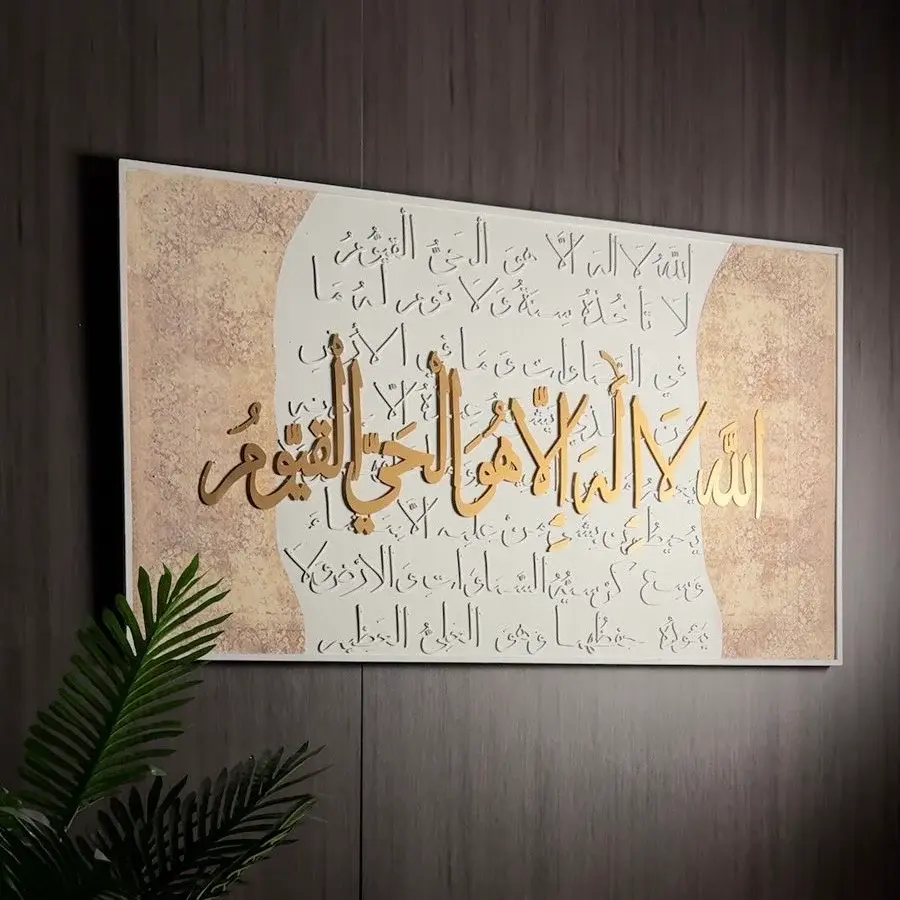 الله لَا اله الَّا هوَ الحيُّ القيُّومُ
لَا تأخذهُ سِنةٌ وَلَا نوم له مَا
في السماوات وَمَا في الأرض
اللَّه لَا إِلَهَ إِلَّا هُوَ الْحَيُّ الْقَيُّومُ
يحيطون بشيء من علمه الا بما شاء
وسع كرسيهُ السمَاوَاتِ وَالارضَ وَلَا
يؤُدهُ حفظهما وهو العليُّ العظيم